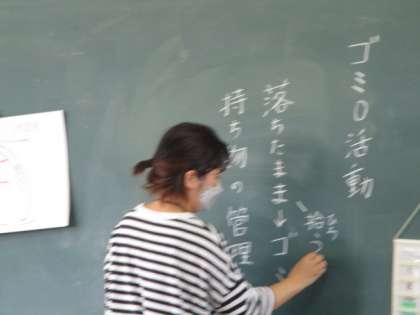 ゴミ0活動
落ちたまま→ゴミ
拾う
持ち物の管理